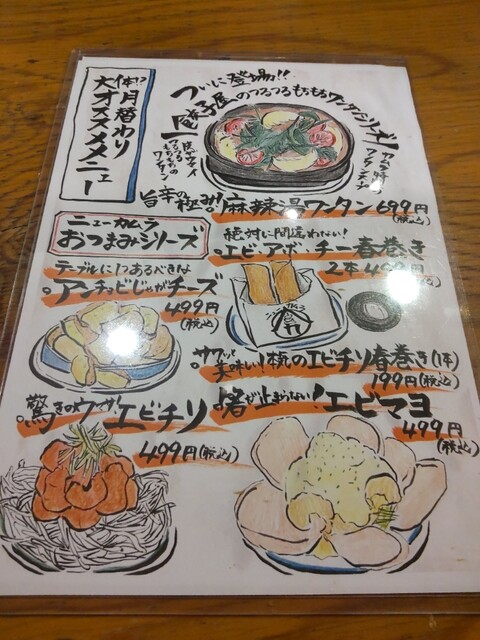 月替わり
大オススメメニュー
ついに登場!!
餃子屋のつるつるもちもちワンタンシリーズ!
旨辛の極み!
麻辣湯ワンタン 699円
(税込)
ニューカムラ
おつまみシリーズ
絶対に間違わない!
エビ・アボ・チー春巻き
2本 499円
テーブルに1つあるべきな
アンチョビじゃがチーズ
499円
(税込)
サクッと
美味い!梳のエビチリ春巻き(1本)
199円(税込)
驚きのウマサ エビチリ
499円(税込)
箸が止まらない!エビマヨ
499円
(税込)